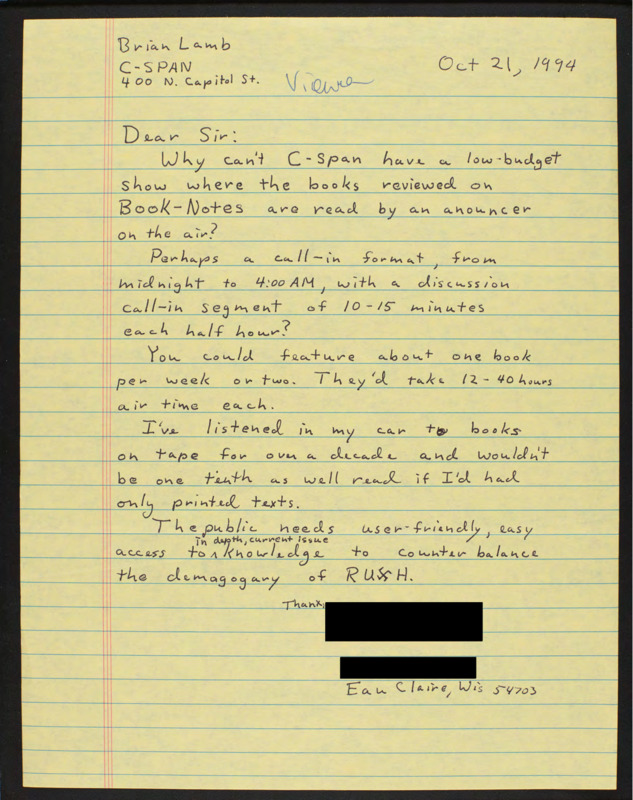 Brian Lamb
C-SPAN
400 N. Capitol St.
Oct 21, 1994
Viewer
Dear Sir:
Why can't C-Span have a low-budget
show where the books reviewed on
Book-Notes are read by an anouncer
on the air?
Perhaps a call-in format, from
midnight to 4:00 AM, with a discussion
call-in segment of 10-15 minutes
each half hour?
You could feature about one book
per week or two. They'd take 12-40 hours
air time each.
I've listened in my car to books
on tape for over a decade and wouldn't
be one tenth as well read if I'd had
only printed texts.
The public needs user-friendly, easy
in depth, current issue
access to ^ knowledge to counter balance
the demagogary of RUSH.
Thanks,
Eau Claire, Wis 54703